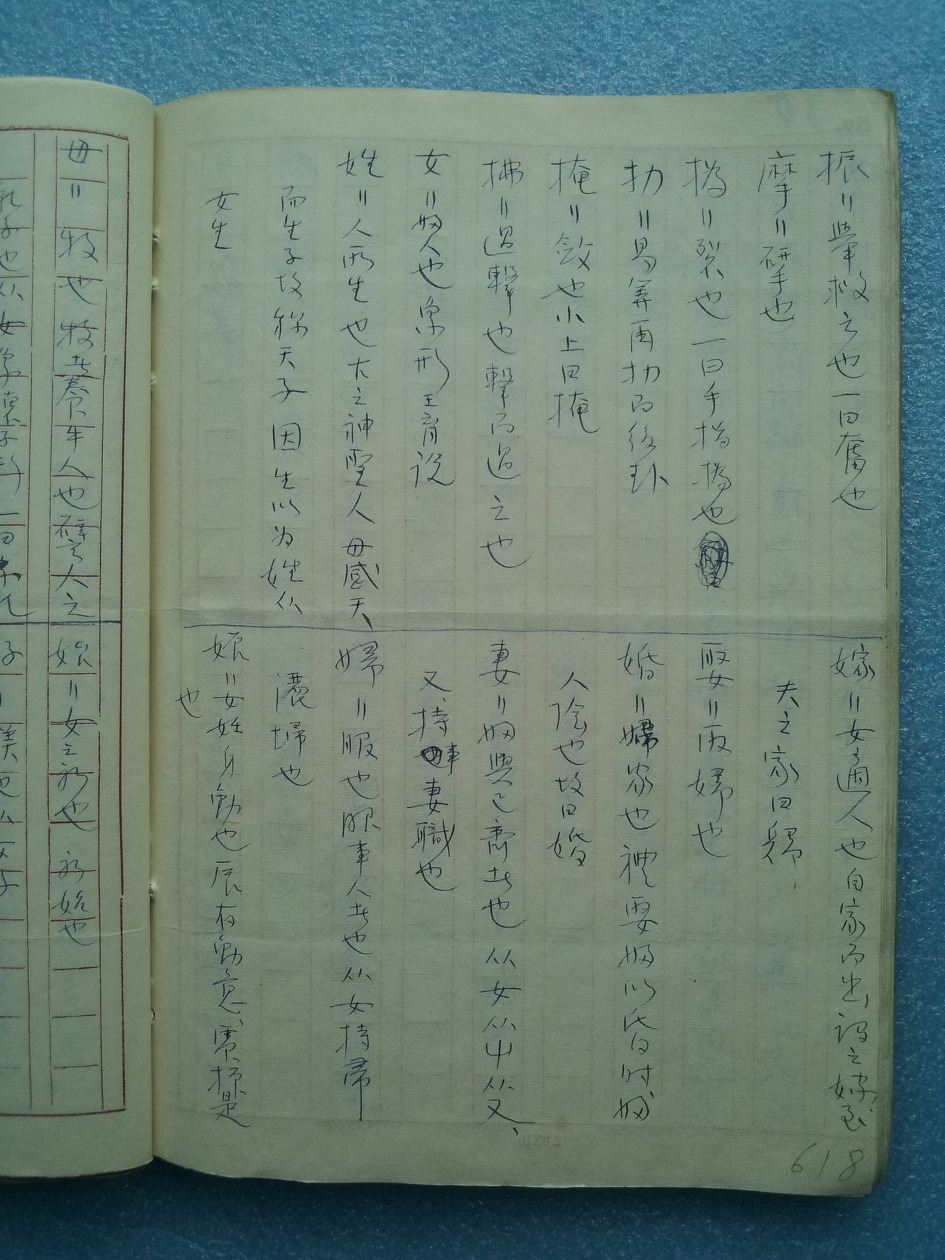 振〃舉救之也一曰奮也
摩〃研也
撝〃裂也一曰手指撝也
扐〃易筭再扐而後卦
掩〃斂也小上曰掩
拂〃過擊也擊而過之也
女〃婦人也象形王育說
姓〃人所生也古之神聖人母感天
而生子故稱天子因生以为姓从
女生
嫁〃女適人也自家而出謂之嫁至
夫之家曰歸
娶〃取婦也
婚〃婦家也禮娶婦以昏时婦
人陰也故曰婚
妻〃婦與己齊者也从女从屮从又
又持事妻職也
婦〃服也服事人者也从女持帚
灑埽也
娠〃女妊身動也辰有動意
也
母〃牧也牧者養牛人也
人之
始〃女之初也 初始也
618